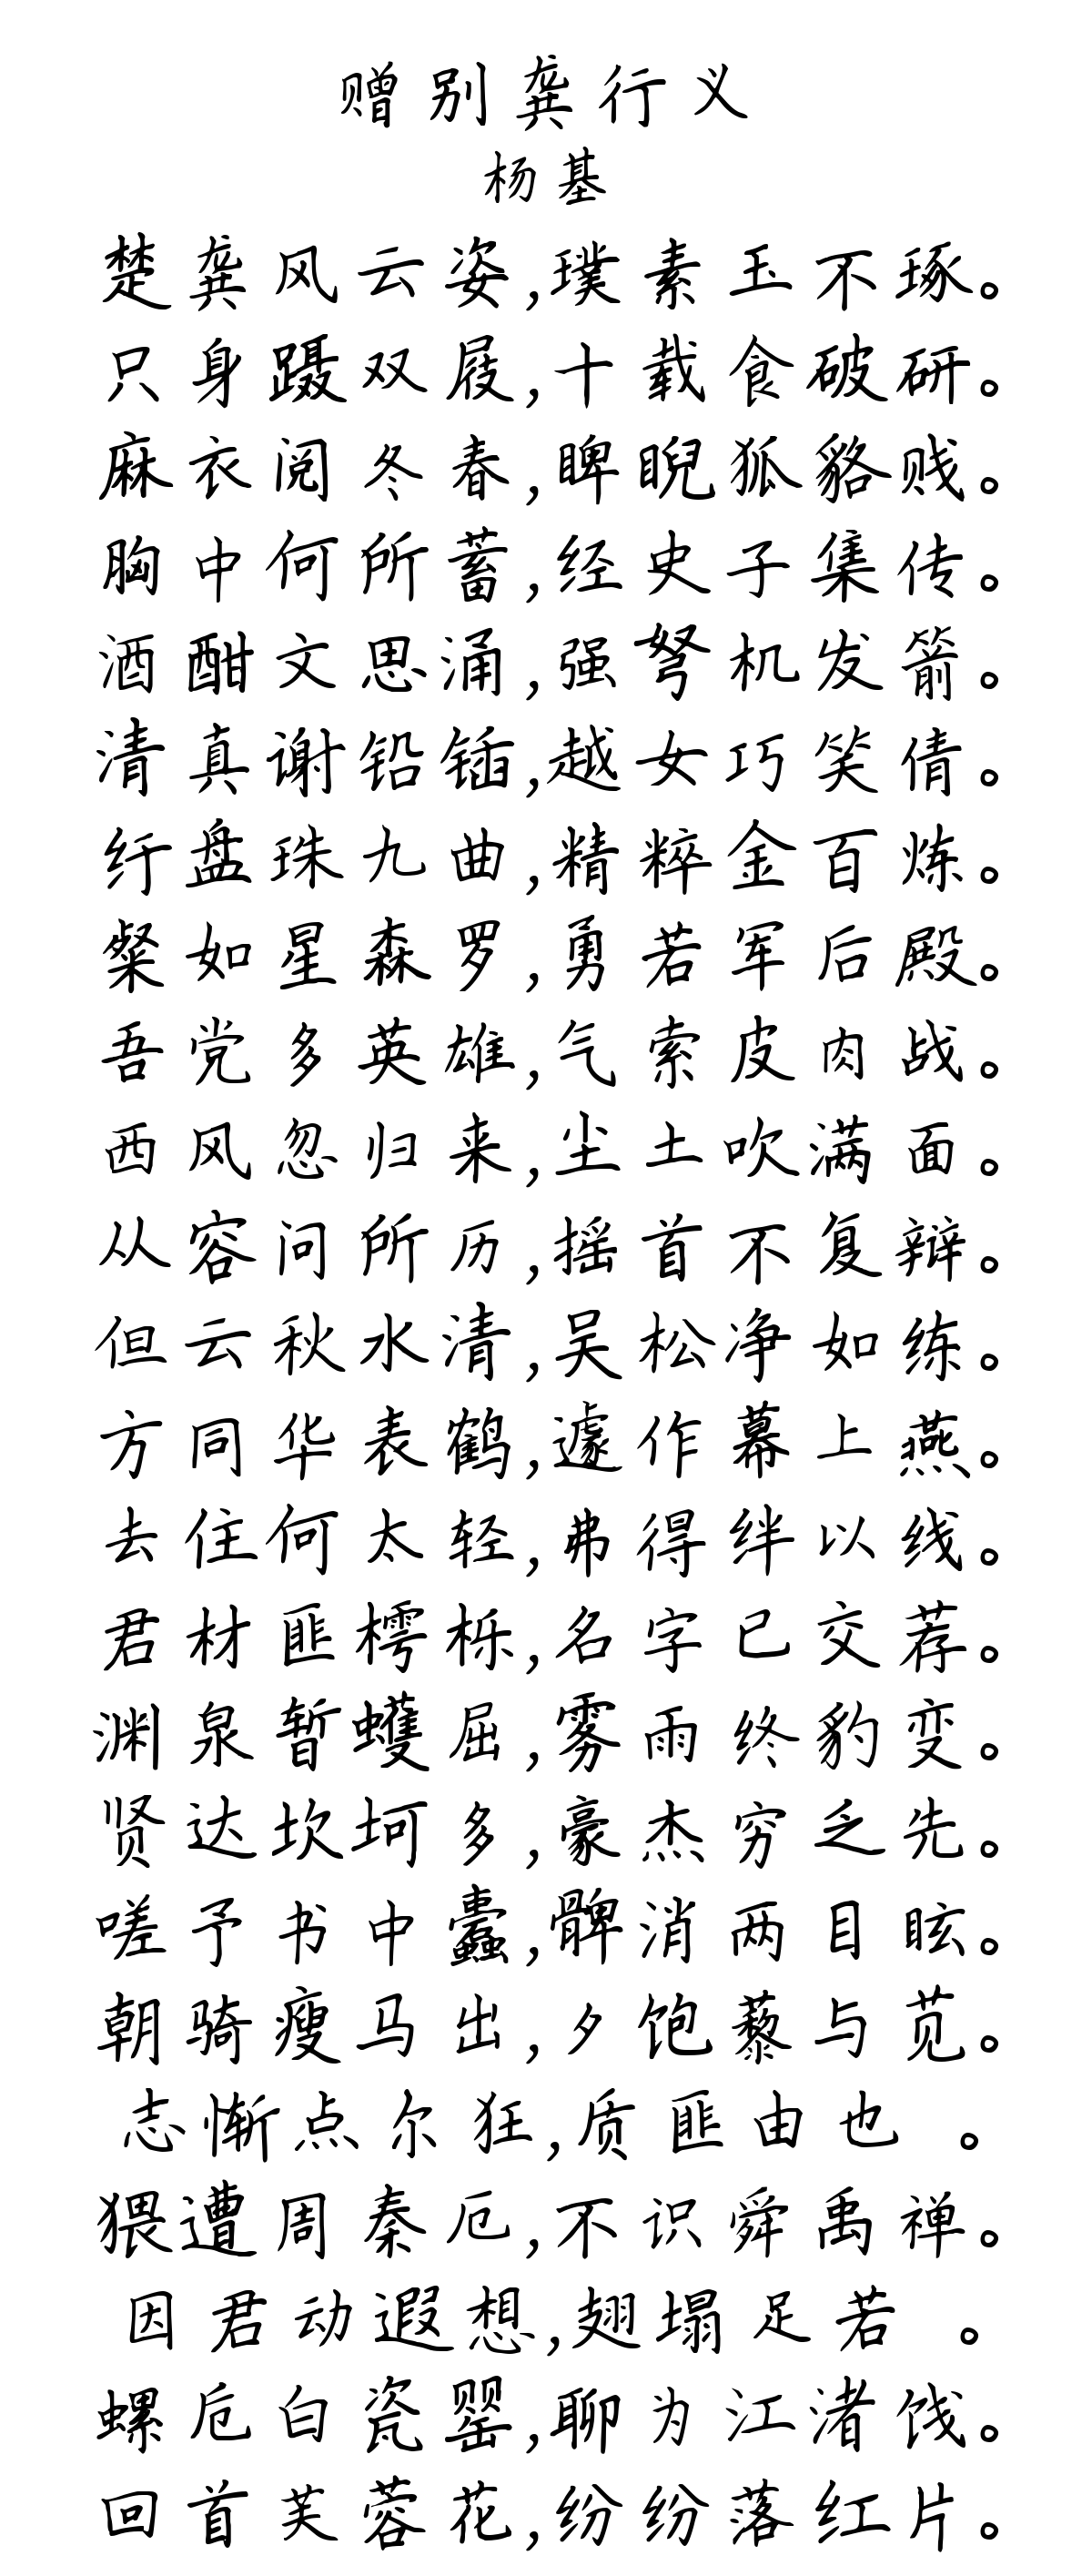 赠别龚行义
杨基
楚龚风云姿,璞素玉不琢。
只身蹑双屐,十载食破研。
麻衣阅冬春,睥睨狐貉贱。
胸中何所蓄,经史子集传。
酒酣文思涌,强弩机发箭。
清真谢铅锸,越女巧笑倩。
纡盘珠九曲,精粹金百炼。
粲如星森罗,勇若军后殿。
吾党多英雄,气索皮肉战。
西风忽归来,尘土吹满面。
从容问所历,摇首不复辩。
但云秋水清,吴松净如练。
方同华表鹤,遽作幕上燕。
去住何太轻,弗得绊以线。
君材匪樗栎,名字已交荐。
渊泉暂蠖屈,雾雨终豹变。
贤达坎坷多,豪杰穷乏先。
嗟予书中蠹,髀消两目眩。
朝骑瘦马出,夕饱藜与苋。
志惭点尔狂,质匪由也 。
猥遭周秦厄,不识舜禹禅。
因君动遐想,翅塌足若 。
螺卮白瓷罂,聊为江渚饯。
回首芙蓉花,纷纷落红片。